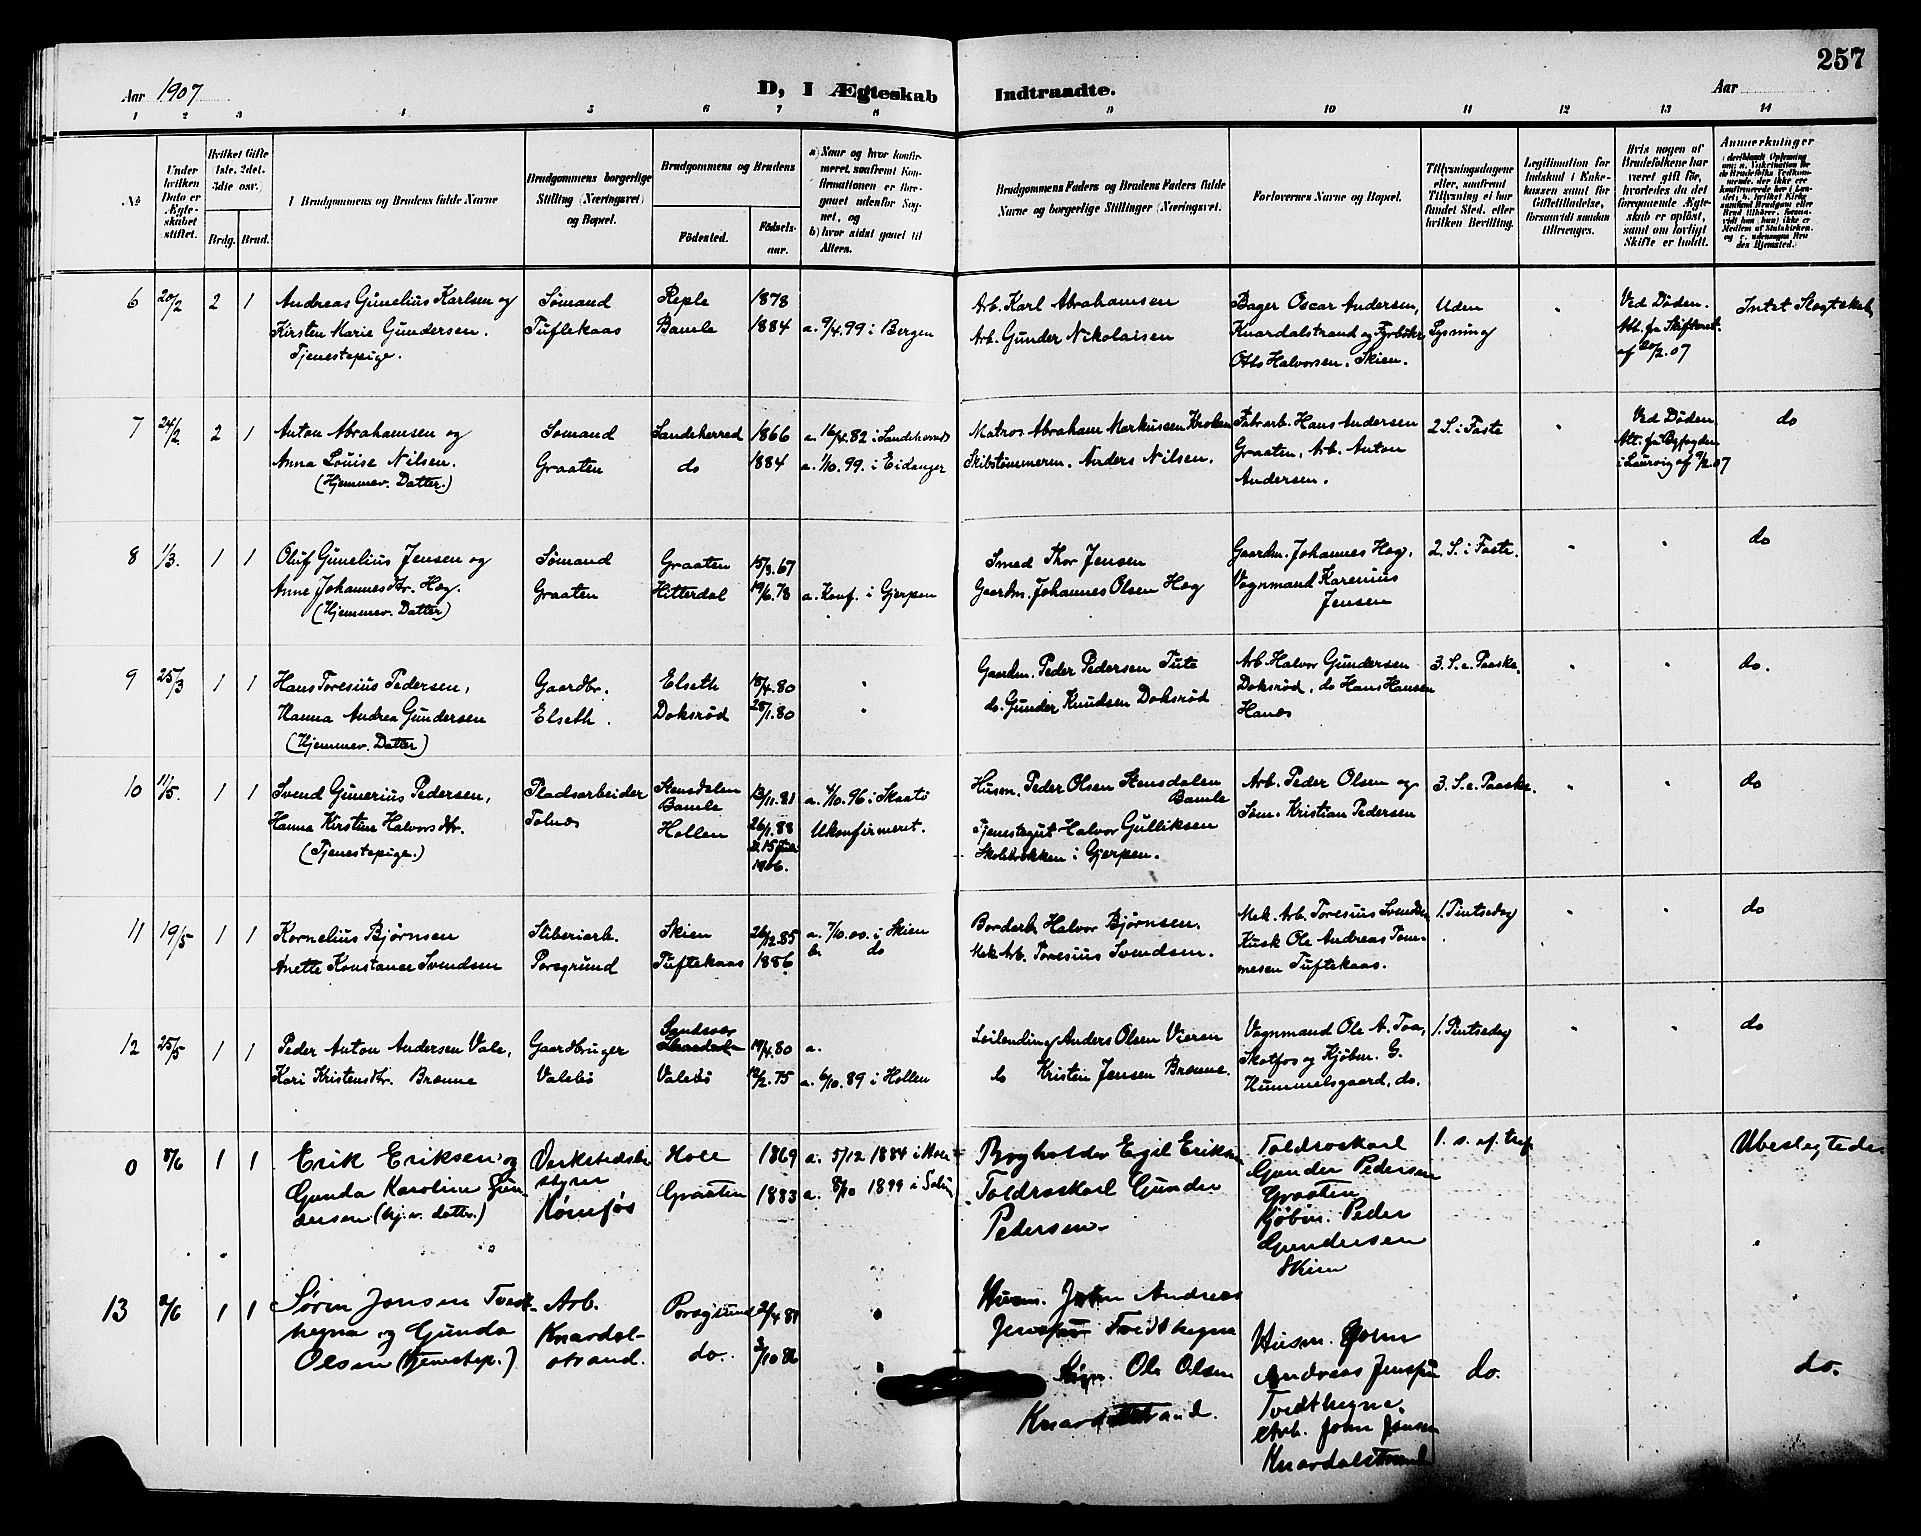 257
Aar 1907
D, I Ægteskab Indtraadte.
Aar
1 2 3 4 5 6 7 8 9 10 11 12 13 14
No
Under hvilken Dato er Ægteskabet stiftet.
Hvilket Gifte 1ste, 2det, 3die osv.
Brdg. Brud.
Brudgommens og Brudens fulde Navne
Brudgommens borgerlige Stilling (Næringsvei) og Bopæl.
Brudgommens og Brudens
Fødested.
Fødselsaar.
a) Naar og hvor konfirmeret, saafremt Konfirmationen er foregaaet udenfor Sognet, og
b) hvor sidst gaaet til Alters.
Brudgommens Faders og Brudens Faders fulde Navne og borgerlige Stillinger (Næringsvei).
Forlovernes Navne og Bopæl.
Tillysningsdagene eller, saafremt Tillysning ei har fundet Sted, efter hvilken Bevilling.
Legitimation for Indskud i Enkekassen samt for Giftetilladelse, forsaavidt saadan tiltrænges.
Hvis nogen af Brudefolkene har været gift før, hvorledes da det foregaaende Ægteskab er opløst, samt om lovligt Skifte er holdt.
Anmerkninger
6 20/2 2 1
Andreas Gunelius Karlsen og
Kirsten Marie Gundersen.
Tjenestepige.
Sømand
Tuftekaas
Reple
Bamle
1878
1884
a. 9/4.99 i Bergen
Arb. Karl Abrahamsen
Arb. Gunder Nikolaisen
Bager Oscar Andersen,
Knardalstrand og
Halvorsen. Skien.
Uden
Lysning
Ved Døden.
Att. fra Skifteret.
af 20/2.07
Intet Slegtskab
7 24/2 2 1
Anton Abrahamsen og
Anna Louise Nilsen.
(Hjemmev. Datter.)
Sømand
Graaten
Sandeherred
do
1866
1884
a. 16/4.82 i Sandeherred
a. 1/10.99. i Eidanger
Matros Abraham Markussen
Skibstømmerm. Anders Nilsen.
Fabrarb. Hans Andersen
Graaten, Arb. Anton
Andersen.
2 S. i Faste
Ved Døden
Att. fra Byfogden
i Laurvig af 9/2.07
do
8 1/3. 1 1
Oluf Gunelius Jensen og
Anne Johannesdtr. Hæg.
(Hjemmev. Datter)
Sømand
Graaten
Graaten
Hitterdal
15/3.67
19/6.78
a. Konf. i Gjerpen
Smed Thor Jensen
Gaardm. Johannes Olsen Hæg
Gaardm. Johannes Hæg,
Vognmand Karenius
Jensen
2. S. i Faste.
do
9 25/3 1 1
Hans Toresius Pedersen,
Hanna Andrea Gundersen
(Hjemmev. Datter)
Gaardbr.
Elseth.
Elseth
Doksrød
18/4.80
28/1.80
Gaardm. Peder Pedersen Tute
do. Gunder Knudsen Doksrød
Arb. Halvor Gundersen
Doksrød, do Hans Hansen
Hanes
3. S. e. Paaske.
do.
10 11/5. 1 1
Svend Gunerius Pedersen,
Hanna Kirstine Halvorsdtr.
(Tjenestepige.)
Pladsarbeider
Tolnes
Stensdalen
Bamle
Hollen
13/11.81
26/1.88
1906.
a. 4/10.96 i Skaatø
Ukonfirmeret.
Husm. Peder Olsen Stensdalen
Bamle
Tjenestegut Halvor Gulliksen
i Gjerpen.
Arb. Peder Olsen og
Søm. Kristian Pedersen
3. S. e. Paaske.
do
11 19/5 1 1
Kornelius Bjørnsen
Anette Konstance Svendsen
Sliberiarb.
Porsgrund
Skien
Tuftekaas
26/12.85
1886
a. 7/10.00. i Skien
b. do
Bordarb. Halvor Bjørnsen.
Mek Arb. Toresius Svendsen.
Mek. Arb. Toresius Svendsen
Kusk Ole Andreas Tom-
mesen Tuftekaas.
1. Pintsedag
do
12 25/5 1 1
Peder Anton Andersen Vale,
Kari Kristensdtr. Brenne
Gaardbruger
Valebø
Sandsvær
Valebø
19/4.80
12/2.75
a.
a. 6/10.89 i Hollen
Leilending Anders Olsen Vieren
do Kristen Jensen Brenne.
Vognmand Ole A. Toa,
Skotfos og Kjøbm. G.
Hummelsgaard, do.
1. Pintsedag
do
0 8/6 1 1
Erik Eriksen og
Gunda Karoline Gun
dersen (hj. v. datter.)
Verkstedsbe
styrer
Kømføs
Hole
Graaten
1869
1883
a. 5/12 1884 i Hole
a. 8/10 1899 i Solum
Brygholder Egil Eriksen
Toldroskarl Gunder
Pedersen
Toldroskarl
Gunder Pedersen
Graaten
Kjøbm. Peder
Gundersen
Skien
1. s. ef. tref.
Ubeslegtede
13 2/6 1 1
Søren Jensen Tvedt-
hegna og Gunda
Olsen (tjenestep.)
Arb.
Knardal-
strand.
Porsgrund
do.
2/4 89
3/10 86
Husm. John Andreas
Jenssen Tvidthegna
Ole Olsen
Knardalstrand.
Husm. John
Andreas Jenssen
Tvidthegna.
Arb. John Jensen
Knardalstrand
do.
do.